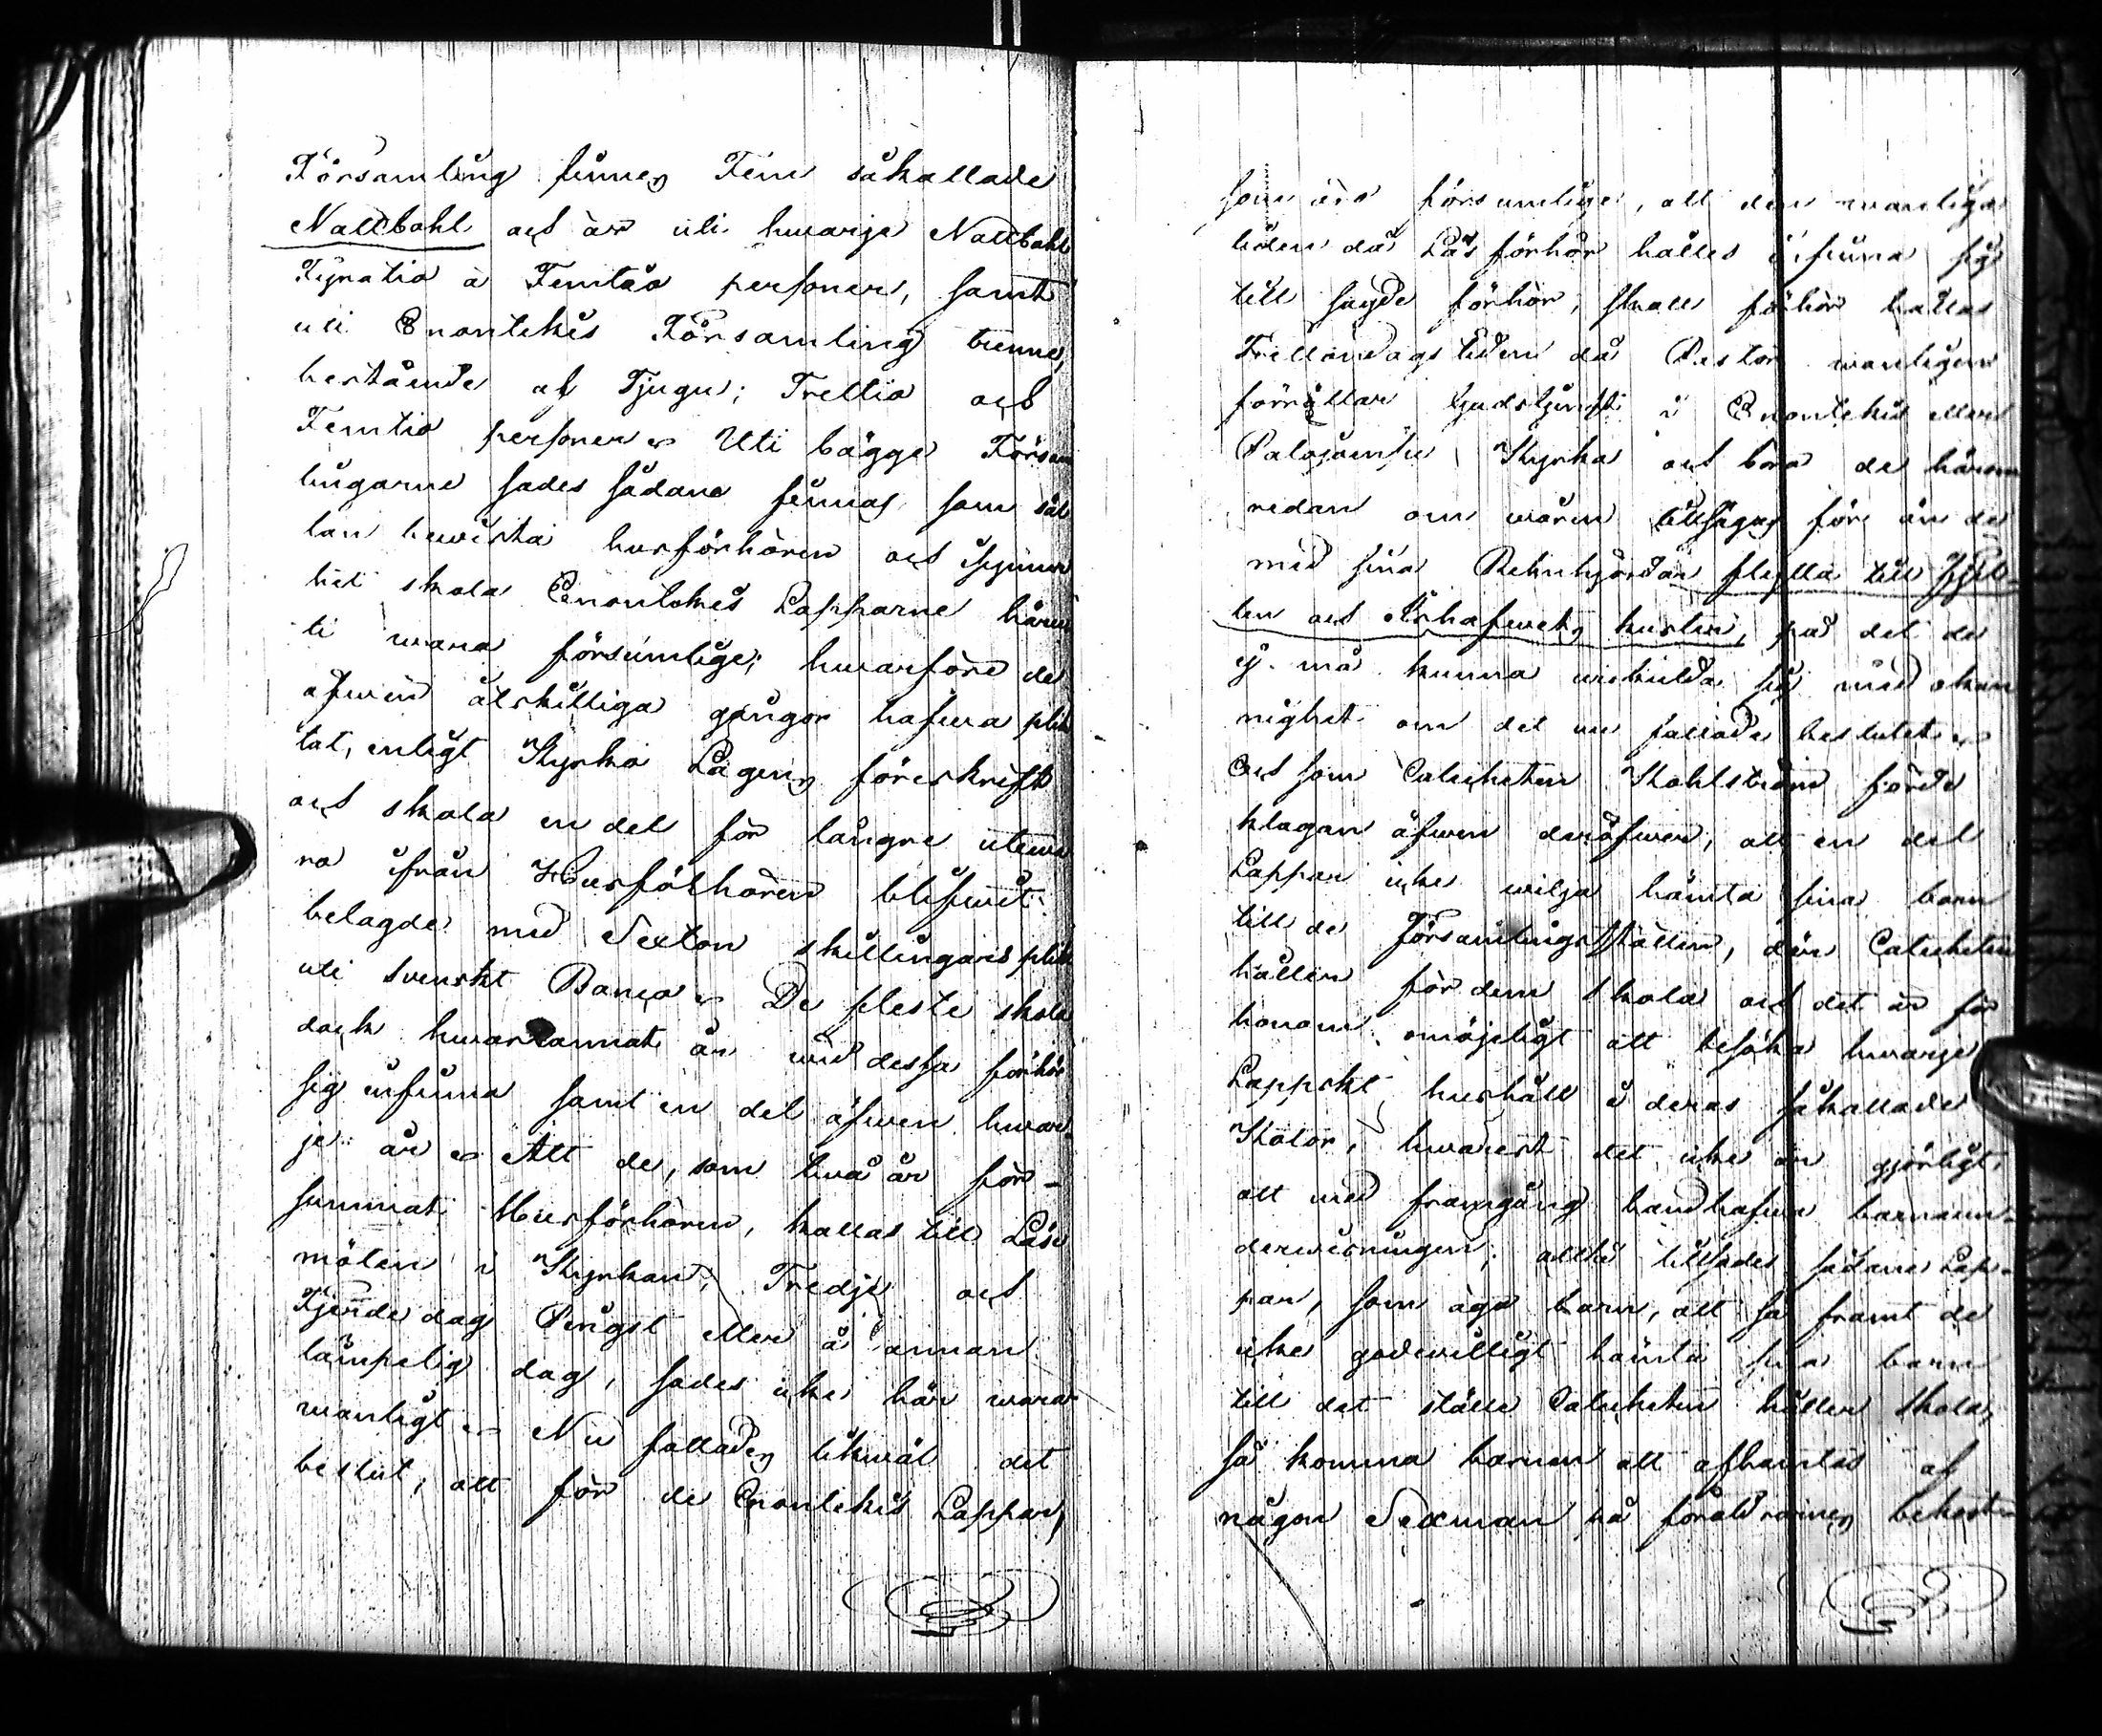 Församling finnes Fem såkallade
Nattbohl och är uti hwarje Nattbohl
Fyratio à Femtio personer, samt
uti Enontekis Församling trenne,
bestående af Tjugu; Trettio och
Femtio personer. Uti bägge Försam
lingarne sades sådane finnas som säl
lan bewista husförhören och
skola Enontekis Lapparne häru
ti wara försumlige; hwarföre de
äfwen åtskilliga gångor hafwa plik
tat, enligt Kyrko Lagens föreskrift
och skola en del för längre utewa
ro ifrån Husförhören blifwit
belagde med Sexton skillingars plikt
uti svenskt Banco. De fleste skola
dock hwartannat år wid dessa förhör
sig infinna samt en del äfwen hwar
je år. Att de, som twå år för-
summat Husförhören, kallas till Läse
möten i Kyrkan, Tredje och
Fjerde dag Pingst eller å annan
lämpelig dag, sades icke här wara
wanligt. Nu fattades likwäl det
beslut; att för de Enontekis Lappar,
som äro försumlige, att den wanliga
tiden då Läsförhör hålles infinna sig
till sagde förhör, skall förhör hållas
Trettondags tiden då Pastor wanligen
förrättar Gudstjenst i Enontekis eller
Palojoensu Kyrka och böra de härom
redan om wåren tillsägas före än de
med sina Rehnhjordar flytta till Fjel-
len och Ishafwets kusten, på det de
ej må kunna urskulda sig med okun
nighet om det nu fattade beslutet.
Och som Catecheten Kohlström förde
klagan äfwen deröfwer, att en del
Lappar icke wilja hämta sina barn
till de Församlingsställen, der Catecheten
håller för dem skola och det är för
honom omöjeligt att besöka hwarje
Lappskt hushåll i deras såkallade
Kotor, hwarest det icke är görligt
att med framgång handhafwa barnaun-
derwisningen; alltså tillsades sådane Lap-
par, som äga barn, att så framt de
icke godwilligt hämta sina barn
till det ställe Catecheten håller skola,
så komma barnen att afhämtas af
någon Sexman på föräldrarnes bekost-